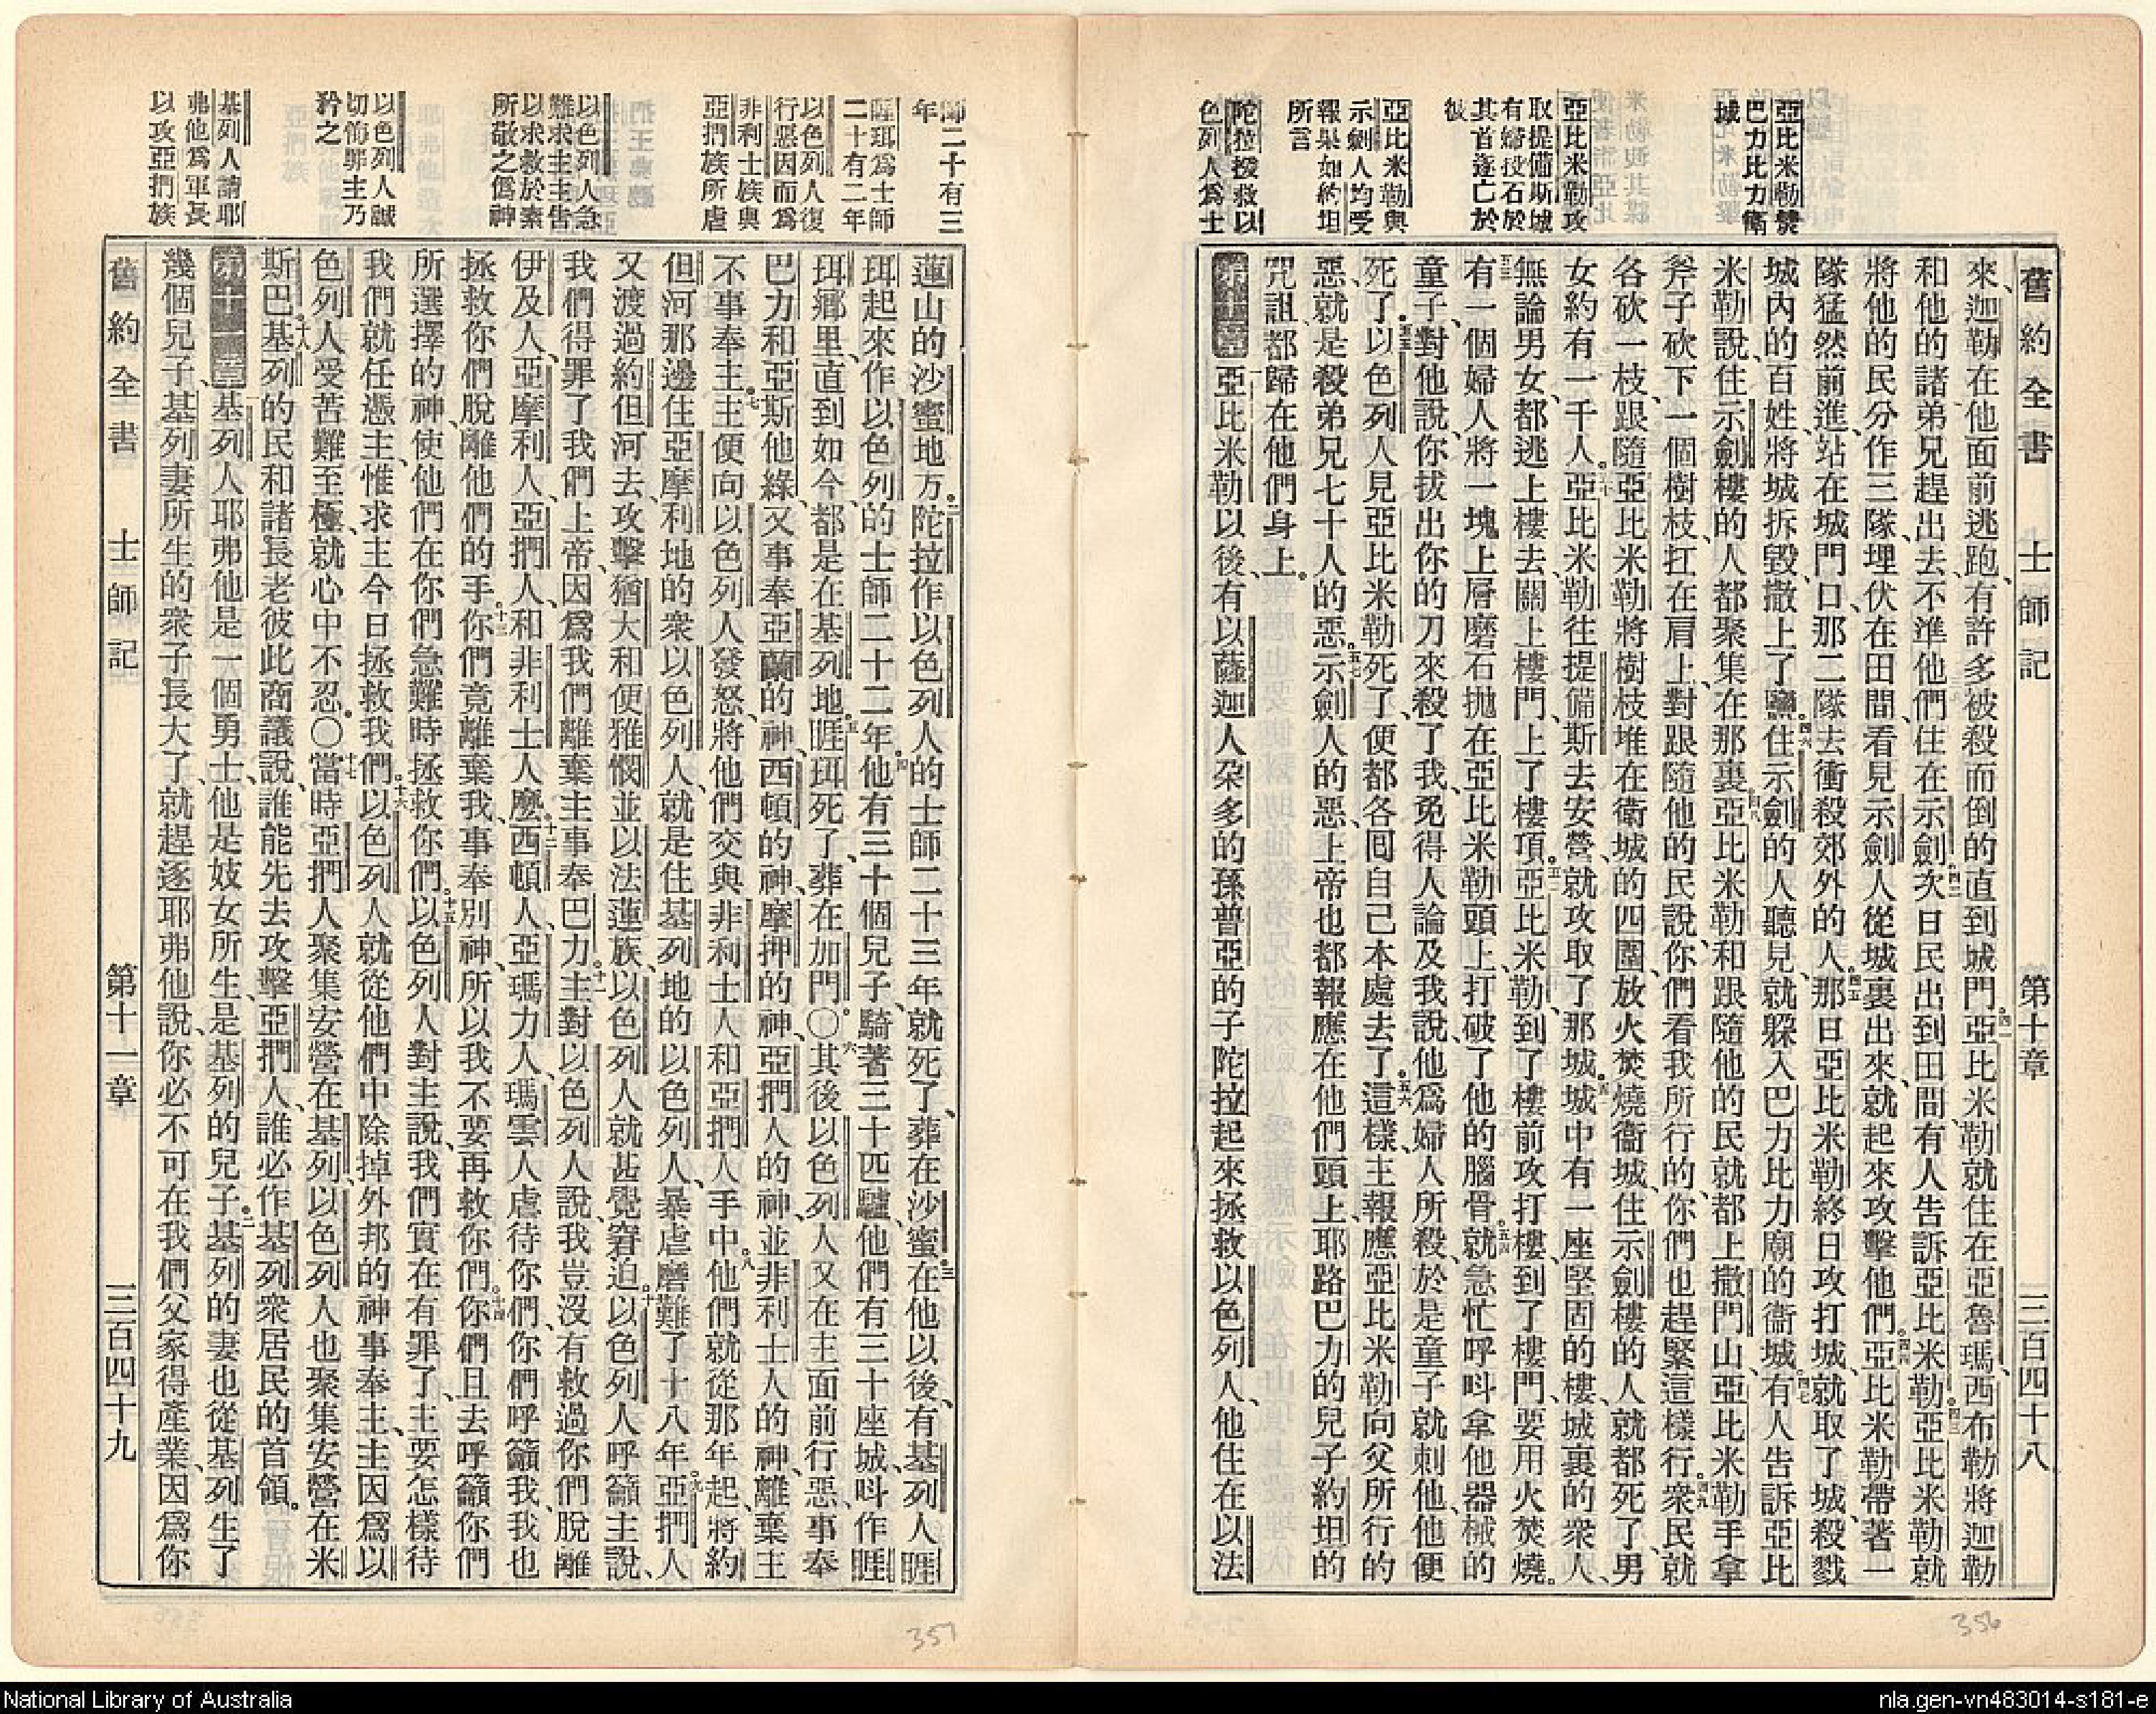 舊約全書 士師記 第十章 三百四十八
亞比米勒焚
巴力比力衛
城
亞比米勒攻
取提備斯城
有婦投石於
其首遂亡於
彼
亞比米勒與
示劍人均受
報果如約坦
所言
陀拉撥救以
色列人爲士
來、迦勒在他面前逃跑、有許多被殺而倒的直到城門。四一亞比米勒就住在亞魯瑪、西布勒將迦勒
和他的諸弟兄趕出去、不準他們住在示劍。四二次日民出到田間、有人告訴亞比米勒。四三亞比米勒就
將他的民分作三隊、埋伏在田間、看見示劍人從城裏出來、就起來攻擊他們。四四亞比米勒帶著一
隊猛然前進、站在城門口、那二隊去衝殺郊外的人。四五那日亞比米勒終日攻打城、就取了城、殺戮
城內的百姓、將城拆毀、撒上了鹽。四六住示劍的人聽見、就躱入巴力比力廟的衞城。四七有人告訴亞比
米勒說、住示劍樓的人都聚集在那裏。四八亞比米勒和跟隨他的民就都上撒門山、亞比米勒手拿
斧子砍下一個樹枝、扛在肩上、對跟隨他的民說、你們看我所行的、你們也趕緊這樣行。四九衆民就
各砍一枝、跟隨亞比米勒、將樹枝堆在衛城的四圍、放火焚燒衞城、住示劍樓的人就都死了、男
女約有一千人。五十亞比米勒往提備斯去安營、就攻取了那城。五一城中有一座堅固的樓、城裏的衆人、
無論男女、都逃上樓去、關上樓門、上了樓頂。五二亞比米勒到了樓前攻打樓、到了樓門、要用火焚燒。
五三有一個婦人將一塊上層磨石抛在亞比米勒頭上、打破了他的腦骨。五四就急忙呼呌拿他器械的
童子、對他說、你拔出你的刀來殺了我、免得人論及我說、他爲婦人所殺、於是童子就刺他、他便
死了。五五以色列人見亞比米勒死了、便都各囘自己本處去了。五六這樣、主報應亞比米勒向父所行的
惡、就是殺弟兄七十人的惡。五七示劍人的惡、上帝也都報應在他們頭上、耶路巴力的兒子約坦的
咒詛、都歸在他們身上。
第十章 一亞比米勒以後、有以薩迦人朶多的孫普亞的子陀拉起來拯救以色列人、他住在以法
356
師二十有三
年
睚珥爲士師
二十有二年
以色列人復
行惡因而爲
非利士族與
亞捫族所虐
以色列人急
難求主主吿
以求救於素
所敬之僞神
以色列人誠
切悔罪主乃
矜之
基列人請耶
弗他爲軍長
以攻亞捫族
蓮山的沙蜜地方。二陀拉作以色列人的士師二十三年、就死了、葬在沙蜜。三在他以後、有基列人睚
珥起來、作以色列的士師二十二年。四他有三十個兒子、騎著三十匹驢、他們有三十座城、呌作睚
珥鄉里、直到如今、都是在基列地。五睚珥死了、葬在加門。〇六其後以色列人又在主面前行惡、事奉
巴力和亞斯他綠、又事奉亞蘭的神、西頓的神、摩押的神、亞捫人的神、並非利士人的神、離棄主
不事奉主。七主便向以色列人發怒、將他們交與非利士人和亞捫人手中。八他們就從那年起、將約
但河那邊住亞摩利地的衆以色列人、就是住基列地的以色列人、暴虐磨難了十八年。九亞捫人
又渡過約但河去、攻擊猶大和便雅憫並以法蓮族、以色列人就甚覺窘迫。十以色列人呼籲主說、
我們得罪了我們上帝、因爲我們離棄主事奉巴力。十一主對以色列人說、我豈沒有救過你們脫離
伊及人、亞摩利人、亞捫人、和非利士人麼。十二西頓人、亞瑪力人、瑪雲人虐待你們、你們呼籲我、我也
拯救你們脫離他們的手。十三你們竟離棄我、事奉別神、所以我不要再救你們。十四你們且去呼籲你們
所選擇的神、使他們在你們急難時拯救你們。十五以色列人對主說、我們實在有罪了、主要怎樣待
我們就任憑主、惟求主今日拯救我們。十六以色列人就從他們中除掉外邦的神事奉主、主因爲以
色列人受苦難至極、就心中不忍。〇十七當時亞捫人聚集安營在基列、以色列人也聚集安營在米
斯巴。十八基列的民和諸長老彼此商議說、誰能先去攻擊亞捫人、誰必作基列衆居民的首領。
第十一章 一基列人耶弗他是一個勇士、他是妓女所生、是基列的兒子。二基列的妻也從基列生了
幾個兒子、基列妻所生的衆子長大了、就趕逐耶弗他說、你必不可在我們父家得產業、因爲你
舊約全書 士師記 第十一章 三百四十九
357
National Library of Australia
nla.gen-vn483014-s181-e